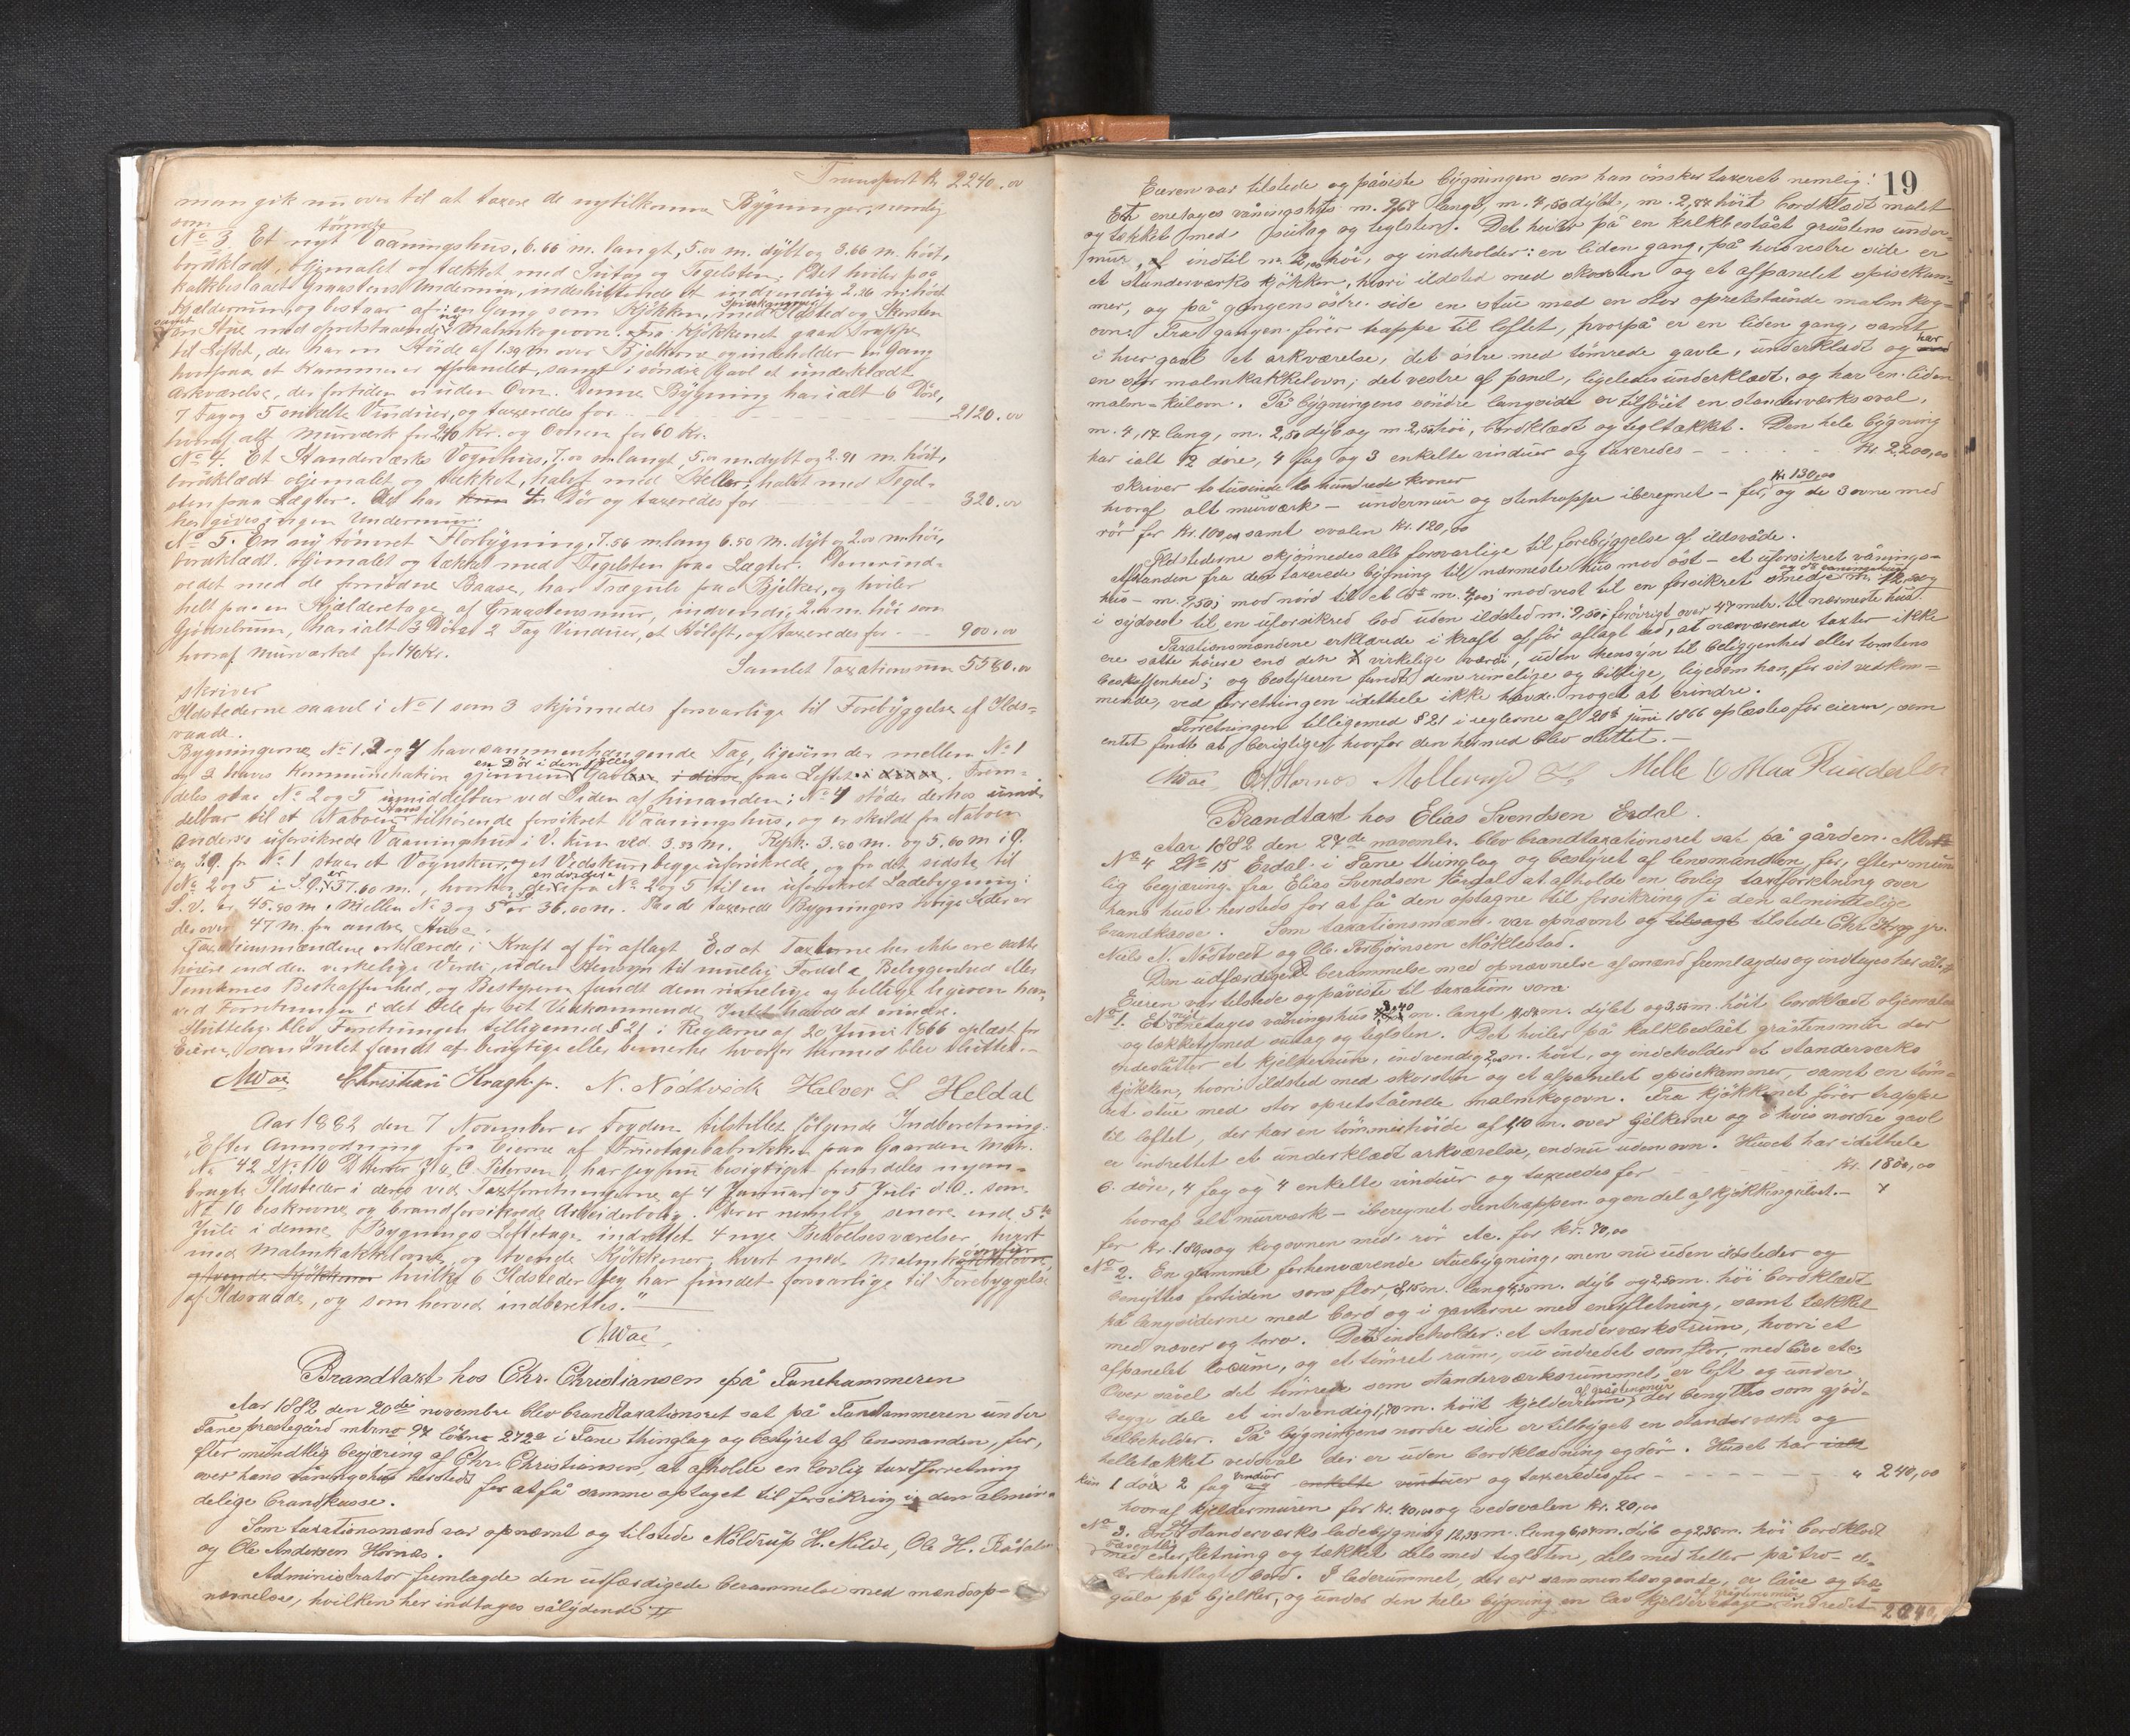 Transport Kr 2240.00
man gik nu over til at taxere de nytilkomne Bygninger, nemlig
som
No 3. Et nyt tømret Vaaningshus, 6.66 m. langt, 5.00 m. dybt og 3.66 m. høit,
bordklædt, oljemalet og tækket med Sutag og Tegelsten. Det hviler paa
kalkbeslaaet Graastens Undermur, indesluttende et indvendig 2.26 m. høit
Kjælderrum, og bestaar af: en Gang som Kjøkken, med Spiskammer Ildsted og Skorsten
samt
en Stue med opretstaaende ny Malmkogeovn. Fra Kjøkkenet gaar Trappe
til Loftet, der har en Høide af 1.39 m over Bjelkerne og indeholder en Gang
hvorfraa et Kammer er afpanelet, samt i søndre Gavl et underklædt
Arkværelse, der fortiden er uden Ovn. Denne Bygning har ialt 6 Døre,
7 Fag og 5 enkelte Vinduer, og taxeredes for 2120.00
hvoraf alt Murværk for 240 Kr. og Ovnen for 60 Kr.
No 4. Et Standerværks Vognhus, 7.00 m. langt, 5.00 m. dybt og 2.91 m. høit,
bordklædt oljemalet og tækket, halvt med Heller, halvt med Tegel-
sten paa Lægter. Det har kun 4 Dør og taxeredes for 320.00
her gives ingen Undermur.
No 5. En ny tømret Florbygning, 7.56 m. lang 6.50 m. dyb og 2.00 m. høi,
bordklædt. Oljemalet og tækket med Tegelsten paa Lægter. Den er ind-
redet med de fornødne Baase, har Trægulv paa Bjelker, og hviler
helt paa en Kjælderetage af Graastensmur, indvendig 2.00 m. høi som
Gjødselrum, har ialt 3 Døre 2 Fag Vinduer, et Høloft, og taxeredes for 900.00
hvoraf Murværket for 140 Kr.
Samlet Taxationssum 5580.00
skriver
Ildstederne saavel i No 1 som 3 skjønnedes forsvarlige til Forebyggelse af Ilds-
vaade.
Bygningerne No 1, 2 og 4 have sammenhængende Tag, ligesom der mellem No 1
og 2 haves Kommunikation gjennem en Dør i den fælles Gavl fraa Loftet. Frem-
deles staar No 2 og 5 umiddelbar ved Siden af hinanden; No 4 støder derhos umid-
delbar til et Naboen Hans tilhørende forsikret Vaaningshus, og er skildt fra Naboen
Anderses uforsikrede Vaaningshus i V. kun ved 3.33 m. Repk. 3.80 m. og 5.60 m i Ø.
og S.Ø. fr No 1 staar et Vognskur og et Vedskur, begge uforsikrede, og fra det sidste til
No 2 og 5 i S.Ø. er 37.60 m., hvorhos endvidere fra No 2 og 5 til en uforsikret Ladebygning i
S.V. er 45.80 m. Mellem No 3 og 5 er 36.60 m. Fra de taxerede Bygningers øvrige Sider er
der over 47 M. fra andre Huse.
Taxationsmændene erklærede i Kraft af før aflagt Ed at Taxterne her ikke ere satte
høiere end den virkelige Verdi, uden Hensyn til muelig Fordel, Beliggenhed eller
Tomternes Beskaffenhed, og Bestyreren fandt dem rimelige og billige ligesom han,
ved Forretningen i det Hele for sit Vedkommende Intet havde at erindre.
Sluttelig blev Forretningen tilligemed § 21 i Reglerne af 20 Juni 1866 oplæst for
Eieren, som Intet fandt at berigtige eller bemerke hvorfor hermed blev sluttet.
AWae Christian Kraghjr. N. Nödtvedt Halvor L Heldal
Aar 1882 den 7 November er Fogden tilstillet følgende Indberetning:
"Efter Anmodning fra Eierne af Tricotagefabrikken paa Gaarden Matr.
No 42 LNo 110 har jeg besigtiget fremdeles nyan-
bragte Ildsteder i deres ved Taxtforretningerne af 4 Januar og 5 Juli d. A. som
No 10 beskrevne og brandforsikrede Arbeiderbolig. Der er nemlig senere end 5te
Juli i denne Bygnings Loftetage indrettet 4 nye Beboelsesværelser, hvert
med Malmkakkelovne, og tvende Kjøkkener, hvert med Malmkomfur
og tvende Kjøkkener hvilke 6 Ildsteder jeg har fundet forsvarlige til Forebyggelse
af Ildsvaade, og som herved indberettes."
AWae,
Brandtaxt hos Chr. Christiansen på Fanehammeren
Aar 1882 den 20de novembr blev brandtaxationsret sat på Fanehammeren under
Fane prestegård mtrno 94 løbno 272a i Fane thinglag og bestyret af lensmanden, for,
efter mundtlig begjæring af Chr. Christiansen, at afholde en lovlig taxtforretning
over hans våningshus hersteds for at få samme optaget til forsikring i den almin-
delige brandkasse.
Som taxationsmænd var opnævnt og tilstede Moldrup H. Milde, Ole H. Rådalen
og Ole Andersen Hornæs.
Administrator fremlagde den udfærdigede berammelse med mændsop-
nævnelse, hvilken her indtages sålydende
19
Eieren var tilstede og påviste bygningen som han ønsker taxeret nemlig:
Et enetages våningshus m. 9,68 langt, m. 7,50 dybt, m. 2,88 høit bordklædt malet
og tækket med sutag og teglsten. Det hviler på en kalkbeslået gråstens under-
mur, af indtil m. 2,00 høi, og indeholder: en liden gang, på hvis vestre side er
et standerværks kjøkken, hvori ildsted med skorsten og et afpanelet spisekam-
mer, og på gangens östre side en stue med en stor opretstående malmkog-
ovn. Fra gangen fører trappe til loftet, hvorpå er en liden gang, samt
i hver gavl et arkværelse, det östre med tömrede gavle, underklædt og har
en stor malmkakkelovn; det vestre af panel, ligeledes underklædt, og har en liden
malm-kulovn. På bygningens söndre langside er tilføiet en standerværkssval,
m. 4,17 lang, m. 2,50 dyb og m. 2,50 høi, bordklædt og tegltækket. Den hele bygning
har ialt 12 döre, 4 fag og 3 enkelte vinduer og taxeredes Kr. 2,200,00
skriver to tusinde to hundrede kroner
hvoraf alt murværk – undermur og stentrappe iberegnet – for Kr. 130,00 og de 3 ovne med
rör for Kr. 100,00 samt svalen Kr. 120,00
Ildstederne skjønnedes alle forsvarlige til forebyggelse af ildsvåde.
Afstanden fra den taxerede bygning til nærmeste hus mod öst – et uforsikret vånings-
hus – m. 9,50; mod nord til et do m. 4,00; mod vest til en forsikret smedje og do vaaningshus m. 12,50 og
i sydvest til en uforsikred bod uden ildsted m. 9,50; forövrigt over 47 metr. til nærmeste hus.
Taxationsmændene erklærede i kraft af för aflagt ed, at nærværende taxter ikke
ere satte höiere end den virkelige værdi, uden hensyn til beliggenhed eller tomtens
beskaffenhed; og bestyreren fandt dem rimelige og billige, ligesom han, for sit vedkom-
mende, ved forretningen idethele ikke havde noget at erindre.
Forretningen tilligemed § 21 i reglerne af 20de juni 1866 oplæstes for eieren, som
entet fandt at berigtige, hvorfor den hermed blev sluttet.
AWae OAHornæs Mollerup H. Milde
Brandtaxt hos Elias Svendsen Erdal.
Aar 1882 den 27de novembr. blev brandtaxationsret sat på gården Matr
No 4 LNo 15 Erdal i Fane thinglag og bestyret af lensmanden, for, efter mundt-
lig begjæring fra Elias Svendsen Herdal at afholde en lovlig taxtforretning over
hans huse hersteds for at få den optagne til forsikring i den almindelige
brandkasse. Som taxationsmænd var opnævnt og tilsagt tilstede Chr. Krag jr.
Niels N. Nödtvedt og Ole Torbjørnsen Möklestad.
Den udfærdigede berammelse med opnævnelse af mænd fremlagdes og indtages her
Eieren var tilstede og påviste til taxation som:
No 1. Et nyt enetages våningshus 8,40 m. langt m. dybt og 3,50 m. höit bordklædt oljemalet
og tækket med sutag og teglsten. Det hviler på kalkbeslået gråstensmur der
indeslutter et kjelderrum, indvendig 2,00 m. höit, og indeholder et standerverks
kjökken, hvori ildsted med skorsten og et afpanelet spisekammer, samt en töm-
ret stue med stor opretstående malmkogovn. Fra kjökkenet förer trappe
til loftet, der har en tömmerhöide af 1,10 m. over bjelkerne og i hvis nordre gavl
er indrettet et underklædt arkværelse, endnu uden ovn. Huset har idethele
6 döre, 4 fag og 4 enkelte vinduer og taxeredes for Kr. 1800,00
hvoraf alt murværk – iberegnet stentrappen og en del af kjökkengulvet –
for Kr. 180,00 og kogovnen med rör etc. for Kr. 70,00
No 2. En gammel forhenværende stuebygning, men nu uden ildsteder og
benyttes fortiden som flor, 8,15 m. lang 4,35 m. dyb og 2,50 m. höi bordklædt
på langsiderne med bord og i gavlerne med enerfletning, samt tækket
med næver og torv. Det indeholder: et standerværksrum, hvori et
afpanelet locum, og et tömret rum, nu indredet som flor, med båse etc.
Over såvel det tömrede som standerværksrummet, er loft og under
begge dele et indvendig 1,70 m. höit kjelderrum af gråstensmur der benyttes som gjöd-
selbeholder. På bygningens nordre side er tilbyget en standerværks og
helletækket vedsval der er uden bordklædning og dör. Huset har ialt
kun 1 dör 2 fag vinduer og enkelte vinduer og taxeredes for " 240,00
hvoraf kjeldermuren for Kr. 40,00 og vedsvalen Kr. 20,00
No 3. En standerværks ladebygning 12,33 m. lang 6,04 m. dyb og 2,30 m. höi bordklædt
væsentlig
med enerfletning og tækket dels med teglsten, dels med heller på tro- el-
ler kantlagt bord. I laderummet, der er sammenhængende, er låve og træ-
gulv på bjelker, og under den hele bygning en lav kjelderetage af gråstensmur indredet
2040,